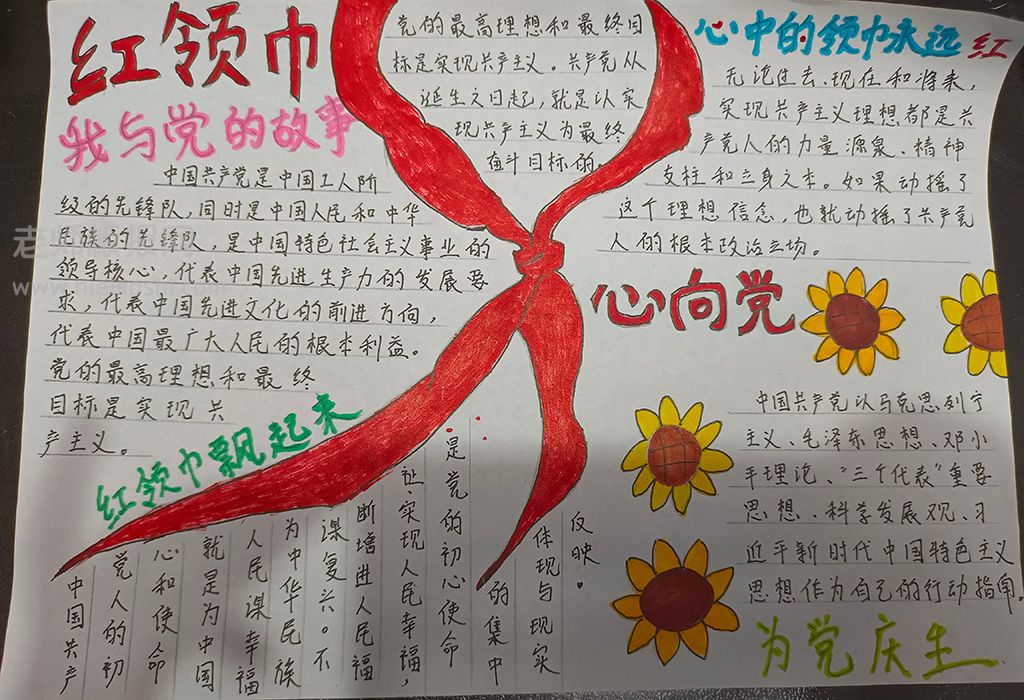 红领巾
我与党的故事
中国共产党是中国工人阶
级的先锋队，同时是中国人民和中华
民族的先锋队，是中国特色社会主义事业的
领导核心，代表中国先进生产力的发展要
求，代表中国先进文化的前进方向，
代表中国最广大人民的根本利益。
党的最高理想和最终
目标是实现共
产主义。
党的最高理想和最终目
标是实现共产主义。共产党从
诞生之日起，就是以实
现共产主义为最终
奋斗目标的
心中的领巾永远红
无论过去、现在和将来，
实现共产主义理想都是共
产党人的力量源泉、精神
支柱和立身之本。如果动摇了
这个理想信念，也就动摇了共产党
人的根本政治立场。
心向党
红领巾飘起来
中国共产
党人的初
心和使命
就是为中国
人民谋幸福
为中华民族
谋复兴。不
断增进人民福
祉、实现人民幸福，
是党的初心使命
的集中
体现与现实
反映。
中国共产党以马克思列宁
主义、毛泽东思想、邓小
平理论、“三个代表”重要
思想、科学发展观、习
近平新时代中国特色主义
思想作为自己的行动指南。
为党庆生